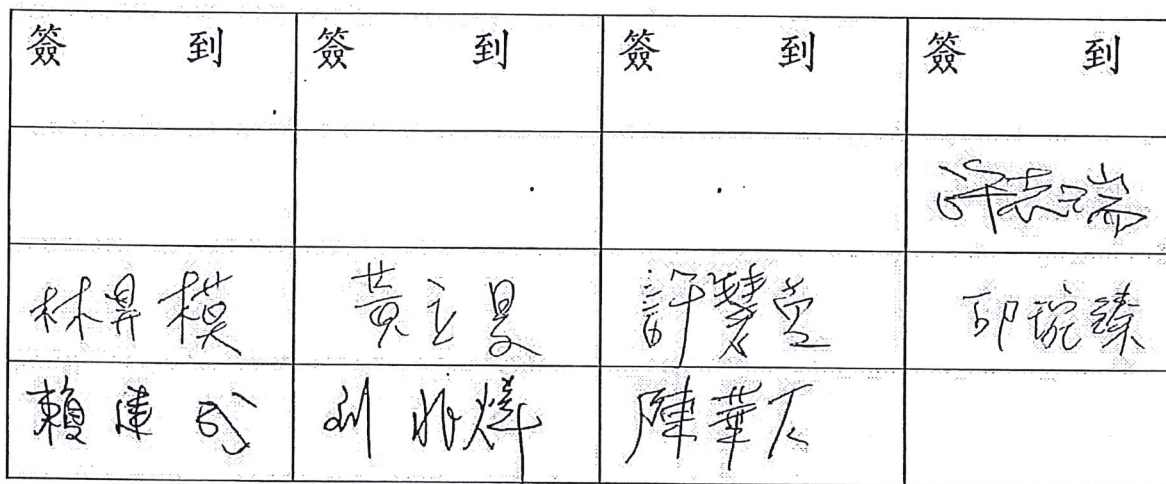 簽到 簽到 簽到 簽到
許志瑞
林昇模 黃立 許慧 邱琬臻
賴建 劉兆 陳華